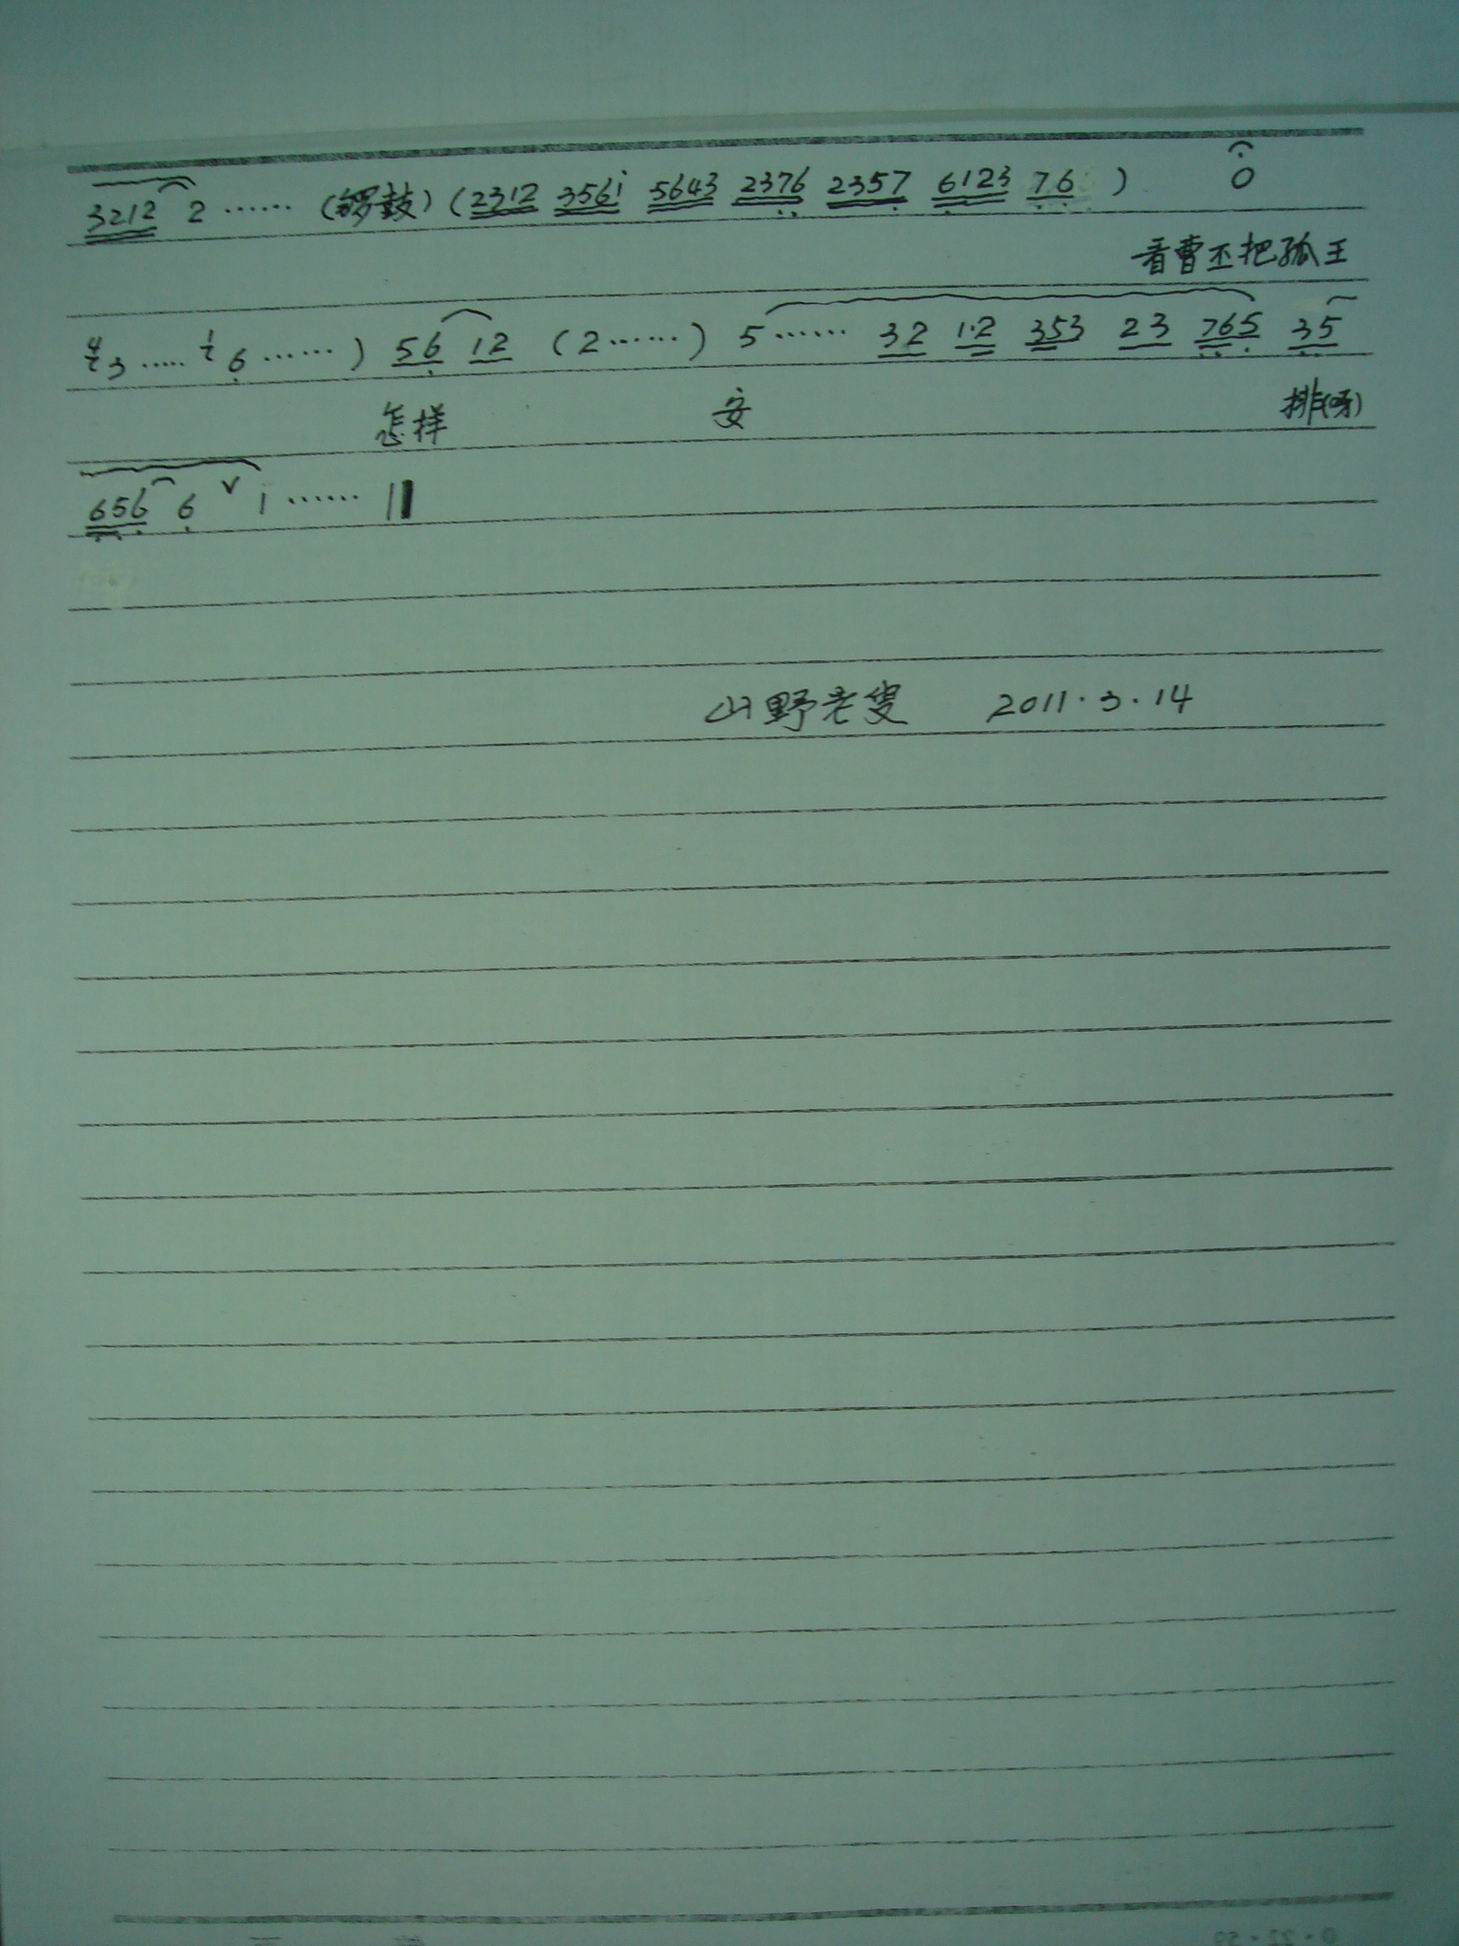 3212 2 …… (锣鼓) (2312 3561̇ 5643 2376 2357 6123 76 ) 0
看曹丕把孤王
3 ..... 6 …… ) 56 12 (2……) 5…… 32 1·2 353 23 765 35
怎样 安 排(呀)
656 6 ∨ 1̇ …… ‖
山野老叟 2011·3·14